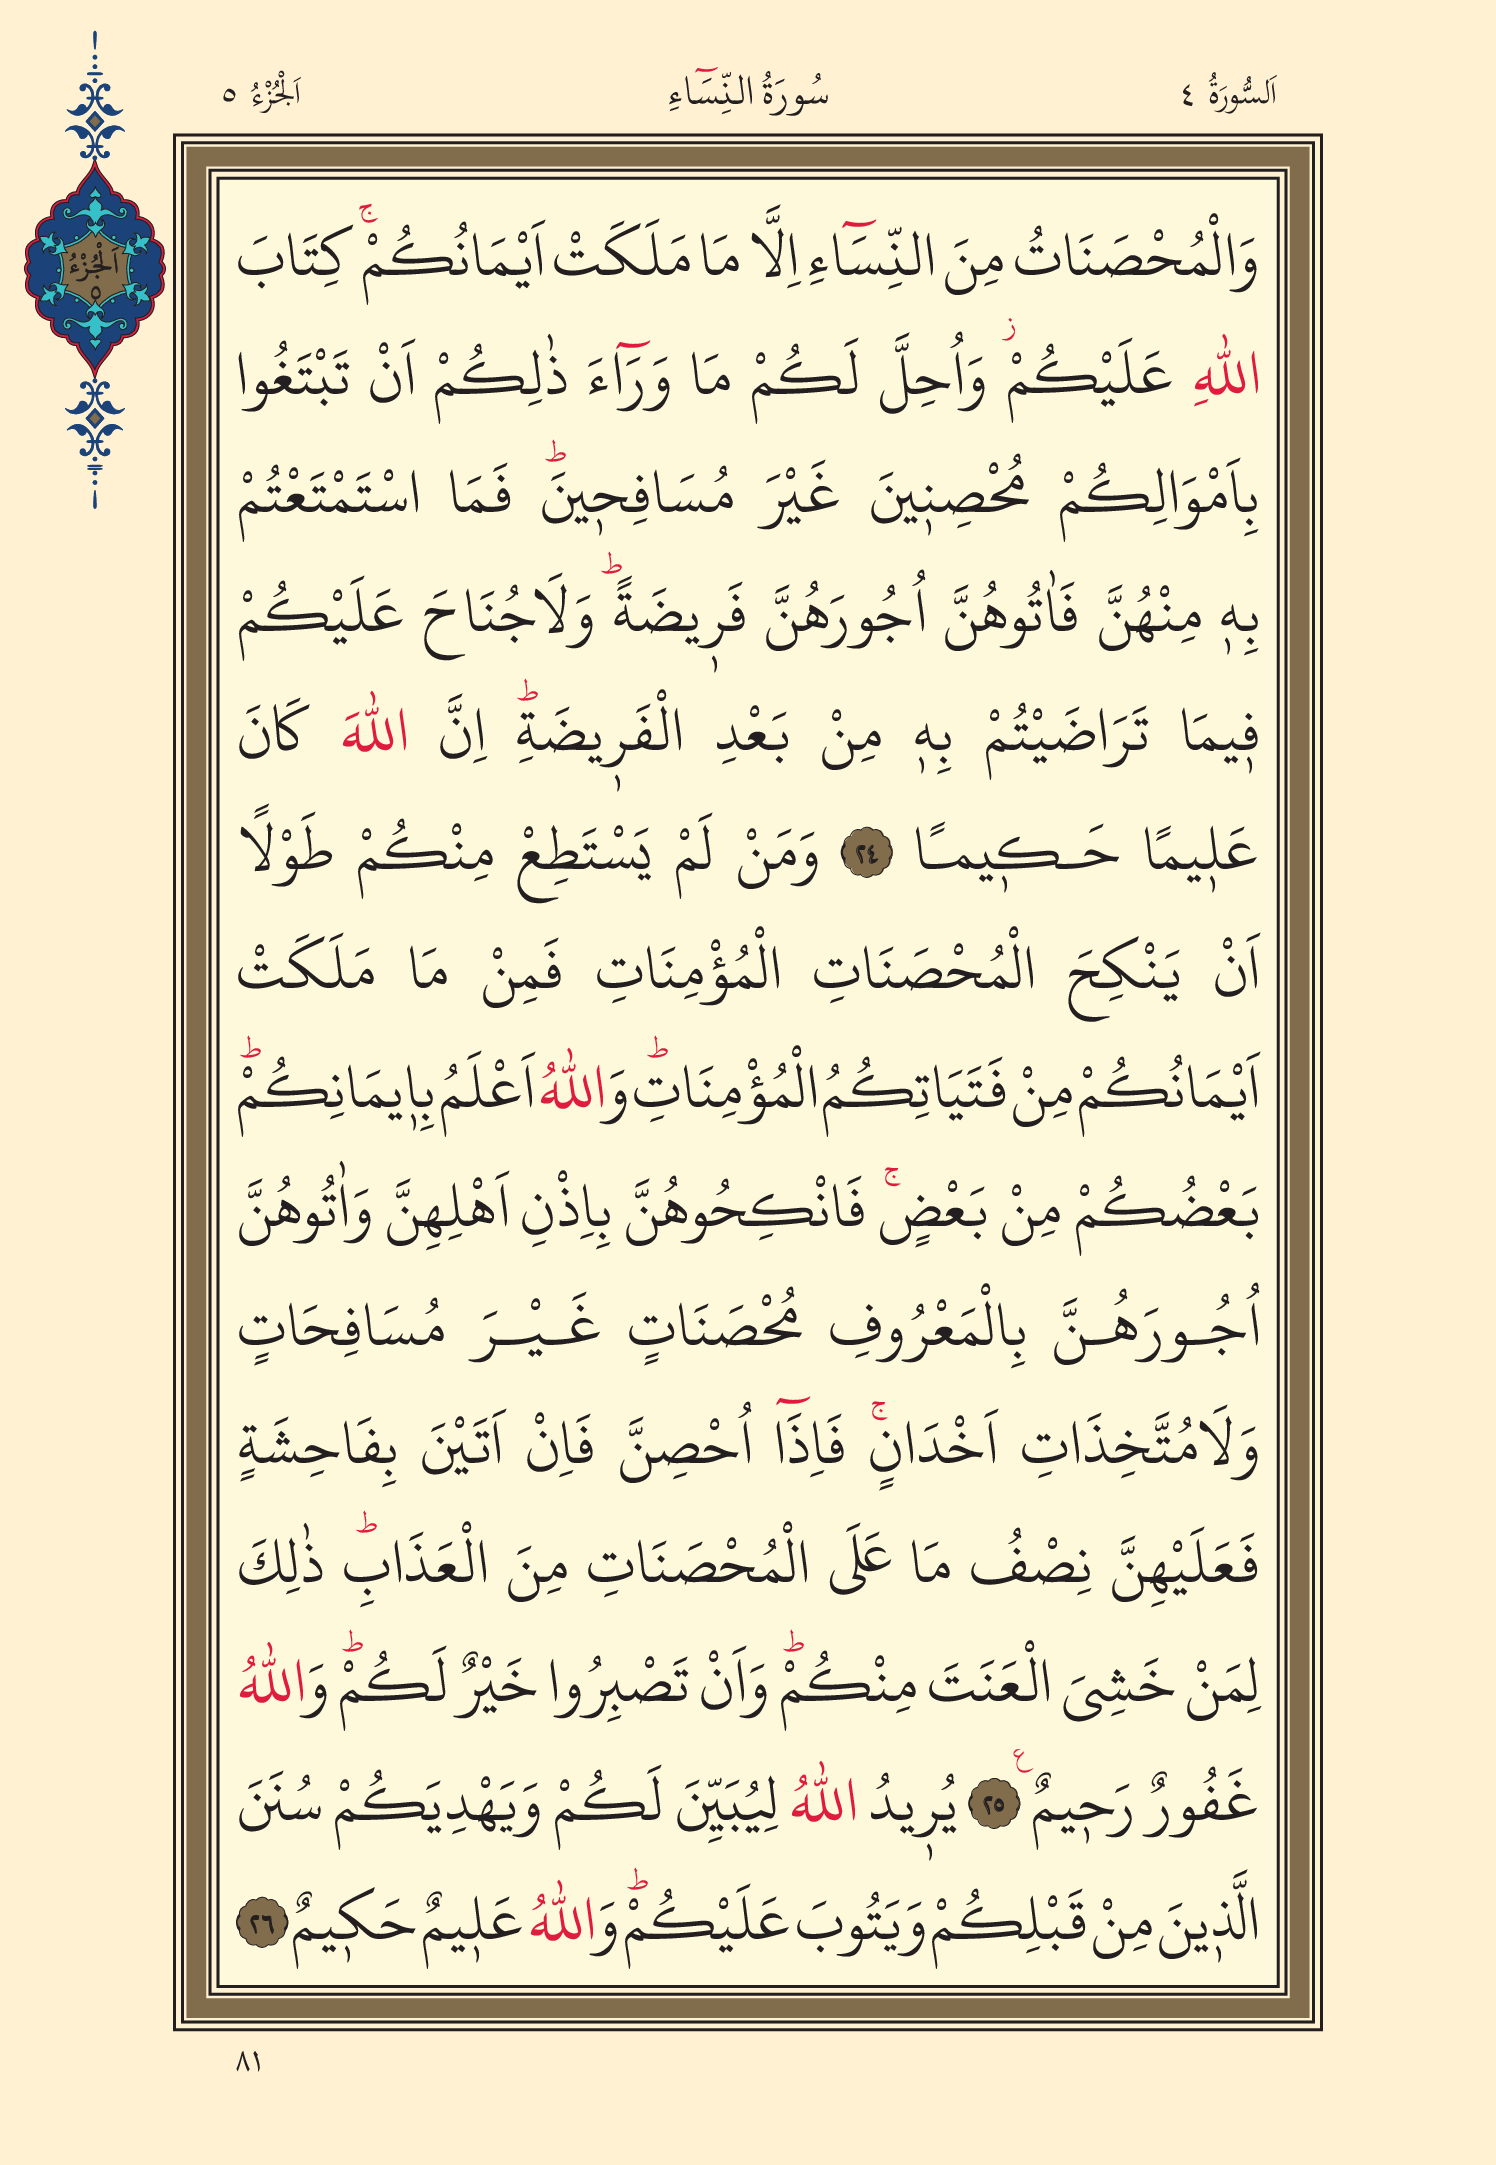 اَلسُّورَةُ ٤ سُورَةُ النِّسَٓاءِ اَلْجُزْءُ ٥
اَلْجُزْءُ
٥
وَالْمُحْصَنَاتُ مِنَ النِّسَٓاءِ اِلَّا مَا مَلَكَتْ اَيْمَانُكُمْۚ كِتَابَ
اللّٰهِ عَلَيْكُمْۘ وَاُحِلَّ لَكُمْ مَا وَرَٓاءَ ذٰلِكُمْ اَنْ تَبْتَغُوا
بِاَمْوَالِكُمْ مُحْصِن۪ينَ غَيْرَ مُسَافِح۪ينَۜ فَمَا اسْتَمْتَعْتُمْ
بِه۪ مِنْهُنَّ فَاٰتُوهُنَّ اُجُورَهُنَّ فَر۪يضَةًۜ وَلَاجُنَاحَ عَلَيْكُمْ
ف۪يمَا تَرَاضَيْتُمْ بِه۪ مِنْ بَعْدِ الْفَر۪يضَةِۜ اِنَّ اللّٰهَ كَانَ
عَل۪يمًا حَك۪يمًا ٢٤ وَمَنْ لَمْ يَسْتَطِعْ مِنْكُمْ طَوْلًا
اَنْ يَنْكِحَ الْمُحْصَنَاتِ الْمُؤْمِنَاتِ فَمِنْ مَا مَلَكَتْ
اَيْمَانُكُمْ مِنْ فَتَيَاتِكُمُ الْمُؤْمِنَاتِۜ وَاللّٰهُ اَعْلَمُ بِا۪يمَانِكُمْۜ
بَعْضُكُمْ مِنْ بَعْضٍۚ فَانْكِحُوهُنَّ بِاِذْنِ اَهْلِهِنَّ وَاٰتُوهُنَّ
اُجُورَهُنَّ بِالْمَعْرُوفِ مُحْصَنَاتٍ غَيْرَ مُسَافِحَاتٍ
وَلَامُتَّخِذَاتِ اَخْدَانٍۚ فَاِذَٓا اُحْصِنَّ فَاِنْ اَتَيْنَ بِفَاحِشَةٍ
فَعَلَيْهِنَّ نِصْفُ مَا عَلَى الْمُحْصَنَاتِ مِنَ الْعَذَابِۜ ذٰلِكَ
لِمَنْ خَشِىَ الْعَنَتَ مِنْكُمْۜ وَاَنْ تَصْبِرُوا خَيْرٌ لَكُمْۜ وَاللّٰهُ
غَفُورٌ رَح۪يمٌ ع ٢٥ يُر۪يدُ اللّٰهُ لِيُبَيِّنَ لَكُمْ وَيَهْدِيَكُمْ سُنَنَ
الَّذ۪ينَ مِنْ قَبْلِكُمْ وَيَتُوبَ عَلَيْكُمْۜ وَاللّٰهُ عَل۪يمٌ حَك۪يمٌ ٢٦
٨١